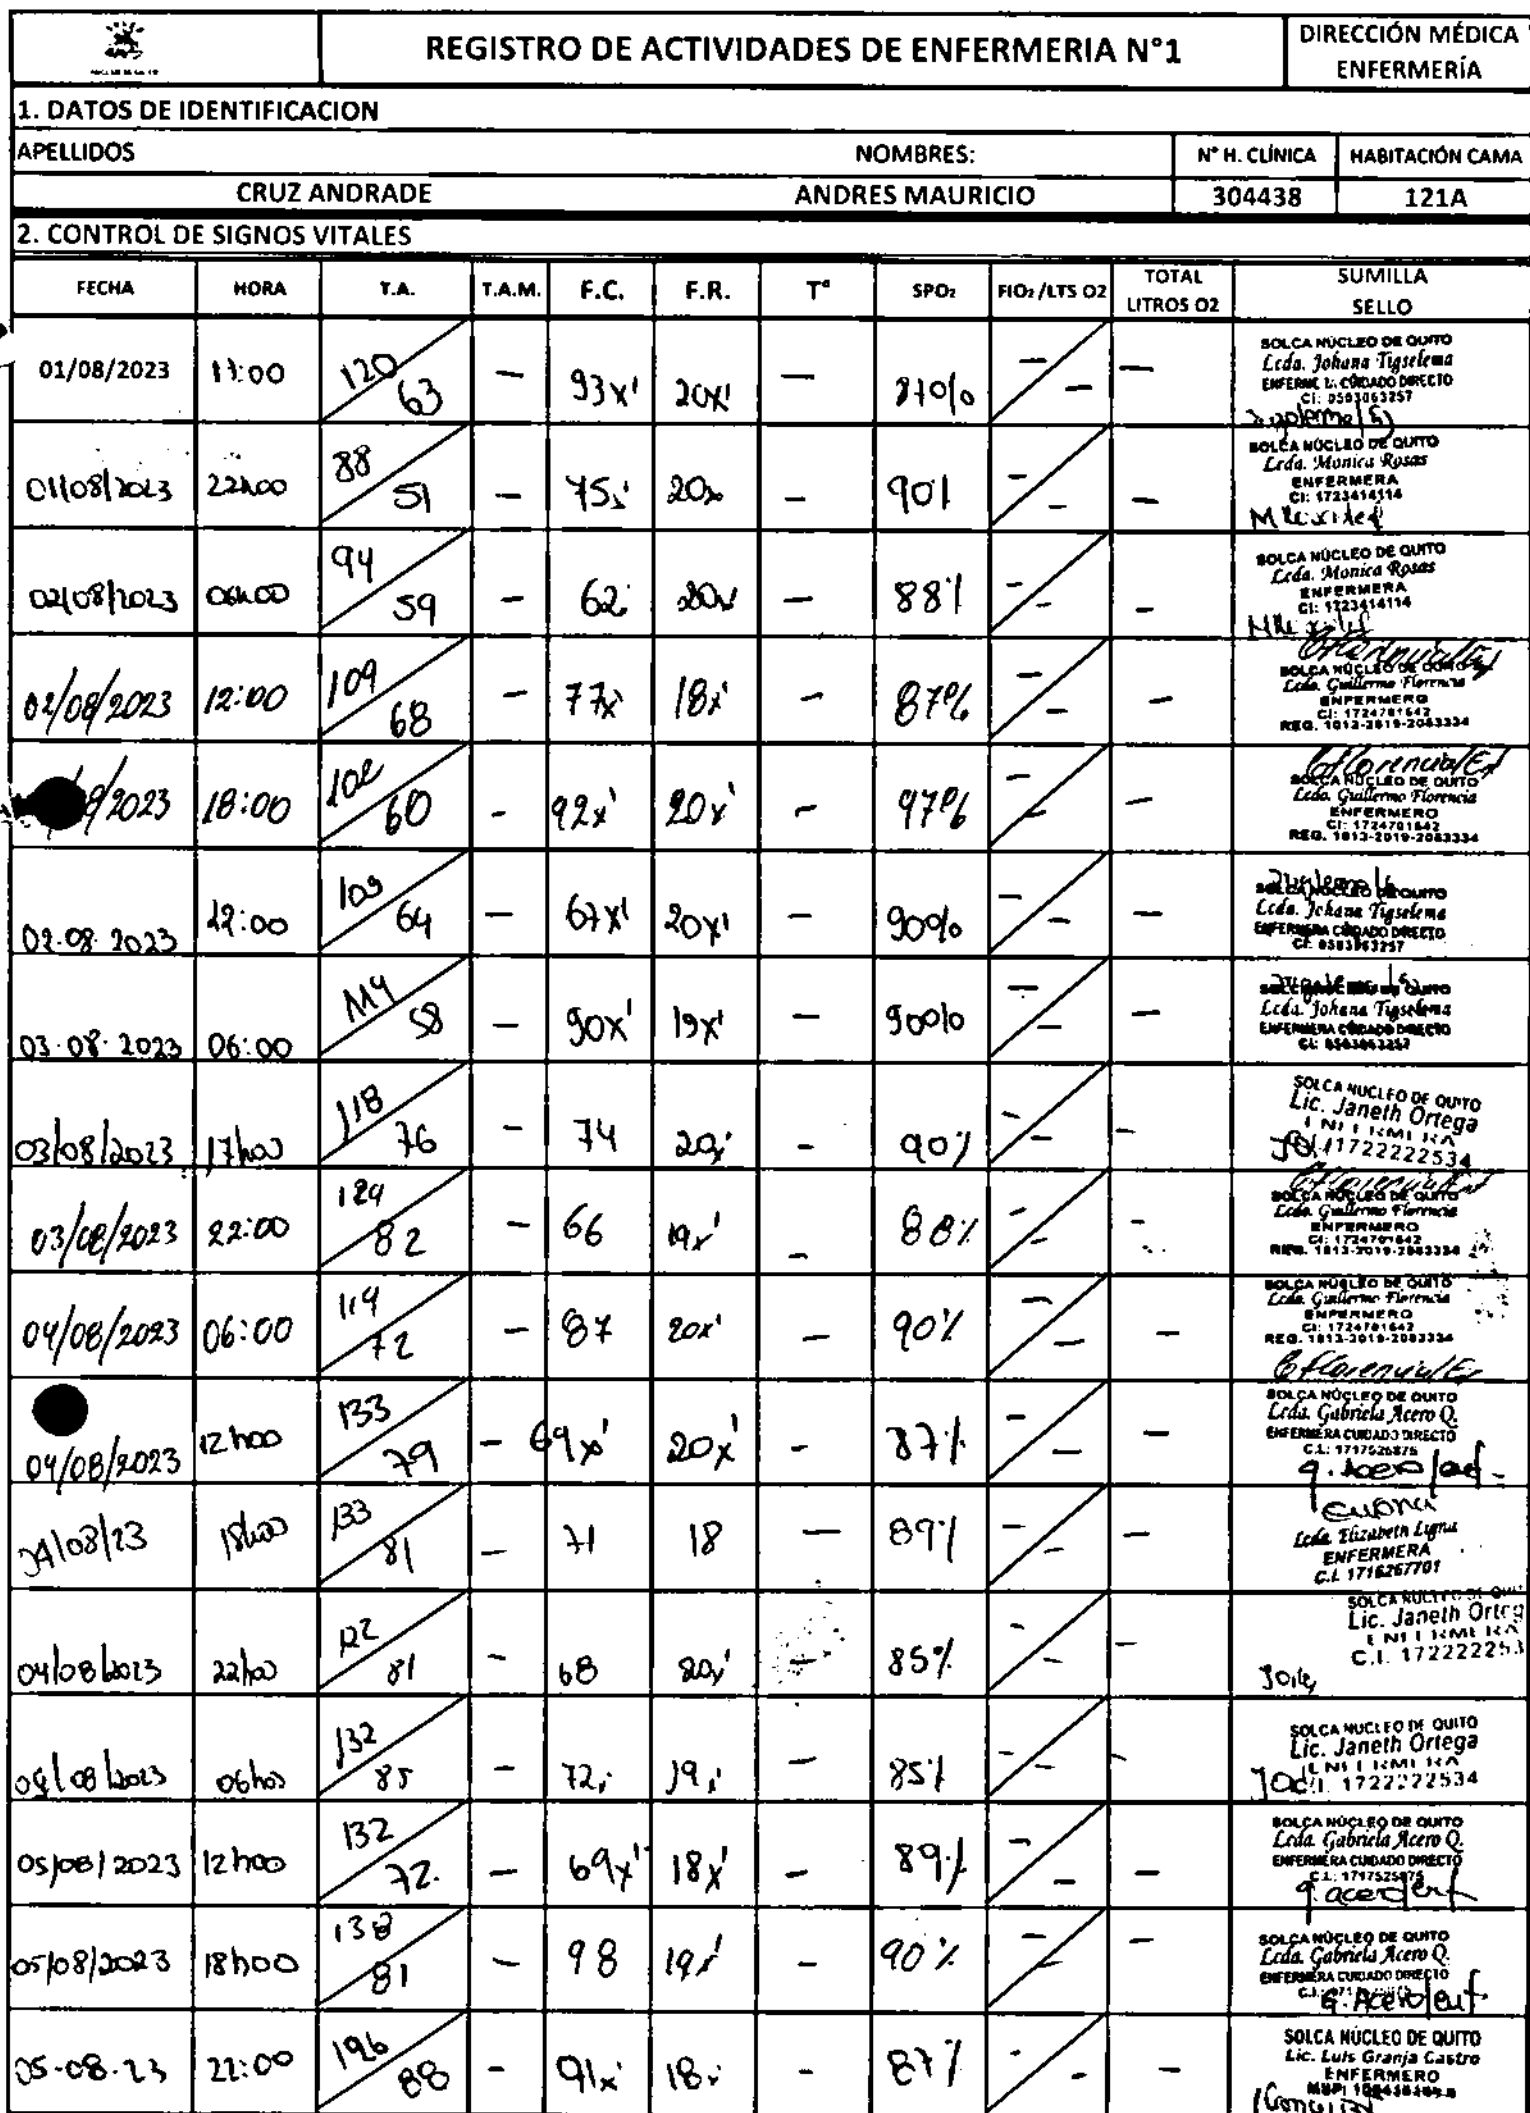 REGISTRO DE ACTIVIDADES DE ENFERMERIA N°1
DIRECCIÓN MÉDICA
ENFERMERÍA
1. DATOS DE IDENTIFICACION
APELLIDOS NOMBRES: N° H. CLÍNICA HABITACIÓN CAMA
CRUZ ANDRADE ANDRES MAURICIO 304438 121A
2. CONTROL DE SIGNOS VITALES
FECHA HORA T.A. T.A.M. F.C. F.R. T° SPO₂ FIO₂/LTS O2 TOTAL LITROS O2 SUMILLA SELLO
01/08/2023 120/63 - 93x' 20x' - - - -
SOLCA NÚCLEO DE QUITO
Lcda. Johana Tigselema
CUIDADO DIRECTO
01/08/2023 22h00 88/51 - 75x' 20x - 90% - - -
SOLCA NÚCLEO DE QUITO
Lcda. Monica Rosas
ENFERMERA
CI: 1723414114
02/08/2023 06h00 94/59 - 62 20x - 88% - - -
SOLCA NÚCLEO DE QUITO
Lcda. Monica Rosas
ENFERMERA
CI: 1723414114
02/08/2023 12:00 109/68 - 77x' 18x' - 87% - - -
SOLCA NÚCLEO DE QUITO
Lcdo. Guillermo Florencia
ENFERMERO
CI: 1724701642
/2023 18:00 102/60 - 92x' 20x' - 97% - - -
SOLCA NÚCLEO DE QUITO
Lcdo. Guillermo Florencia
ENFERMERO
CI: 1724701642
02.08.2023 22:00 103/64 - 67x' 20x' - 90% - - -
Lcda. Johana Tigselema
ENFERMERA CUIDADO DIRECTO
03.08.2023 06:00 114/58 - 90x' 19x' - 90% - - -
Lcda. Johana Tigselema
ENFERMERA CUIDADO DIRECTO
03/08/2023 17h00 118/76 - 74 20x' - 90% - - -
SOLCA NUCLEO DE QUITO
Lic. Janeth Ortega
ENFERMERA
1722222534
03/08/2023 22:00 124/82 - 66 19x' - 88% - - -
SOLCA NÚCLEO DE QUITO
Lcdo. Guillermo Florencia
ENFERMERO
CI: 1724701642
04/08/2023 06:00 119/72 - 87 20x' - 90% - - -
SOLCA NÚCLEO DE QUITO
Lcdo. Guillermo Florencia
ENFERMERO
CI: 1724701642
04/08/2023 12h00 133/79 - 69x' 20x' - 87% - - -
SOLCA NÚCLEO DE QUITO
Lcda. Gabriela Acero Q.
ENFERMERA CUIDADO DIRECTO
C.I.: 1717525875
G. Acero/enf.
04/08/23 18h00 133/81 - 71 18 - 89% - - -
Lcda. Elizabeth
ENFERMERA
C.I. 1716267701
04/08/2023 22h00 122/81 - 68 20x' - 85% - - -
SOLCA NUCLEO DE QUI
Lic. Janeth Orteg
ENFERMERA
C.I. 172222253
08/2023 06h00 132/85 - 72x' 19x' - 85% - - -
SOLCA NUCLEO DE QUITO
Lic. Janeth Ortega
ENFERMERA
1722222534
05/08/2023 12h00 132/72. - 69x' 18x' - 89% - - -
SOLCA NÚCLEO DE QUITO
Lcda. Gabriela Acero Q.
ENFERMERA CUIDADO DIRECTO
C.I.: 1717525875
G. acero/enf
05/08/2023 18h00 138/81 - 98 19x' - 90% - - -
SOLCA NÚCLEO DE QUITO
Lcda. Gabriela Acero Q.
ENFERMERA CUIDADO DIRECTO
G. Acero/enf.
05-08-23 22:00 /88 - 91x' 18x' - 87% - - -
SOLCA NÚCLEO DE QUITO
Lic. Luis Granja Castro
ENFERMERO